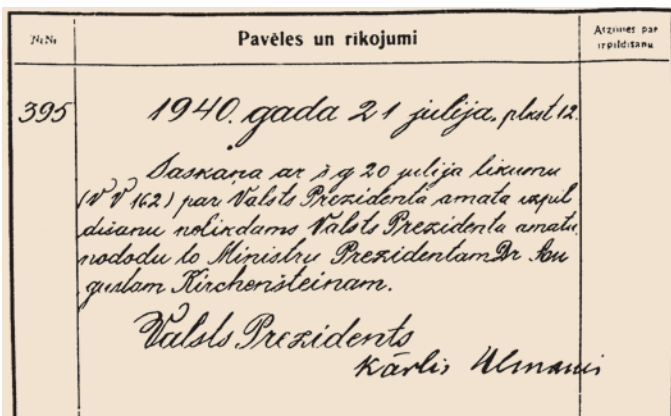 №№
Pavēles un rīkojumi
Atzīmes par
izpildīšanu
395
1940. gada 21 julija, plkst 12.
Saskaņa ar š g 20 julija likumu
(V V 162) par Valsts Prezidenta amata izpil
dišanu nolikdams Valsts Prezidenta amatu,
nododu to Ministru Prezidentam Dr Au
gustam Kirchenšteinam.
Valsts Prezidents
Kārlis Ulmanis